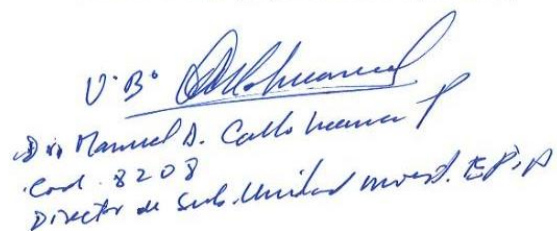 V° B°
Dr. Manuel A. Callohuanca P
Cod. 8208
Director de Sub. Unidad invest. EPIA